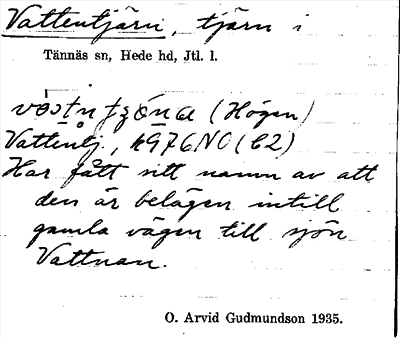 Vattentjärn, tjärn i
Tännäs sn, Hede hd, Jtl. l.
(Högen)
Vattentj., 1976 NO (C2)
Har fått sitt namn av att
den är belägen intill
gamla vägen till sjön
Vattnan.
O. Arvid Gudmundson 1935.